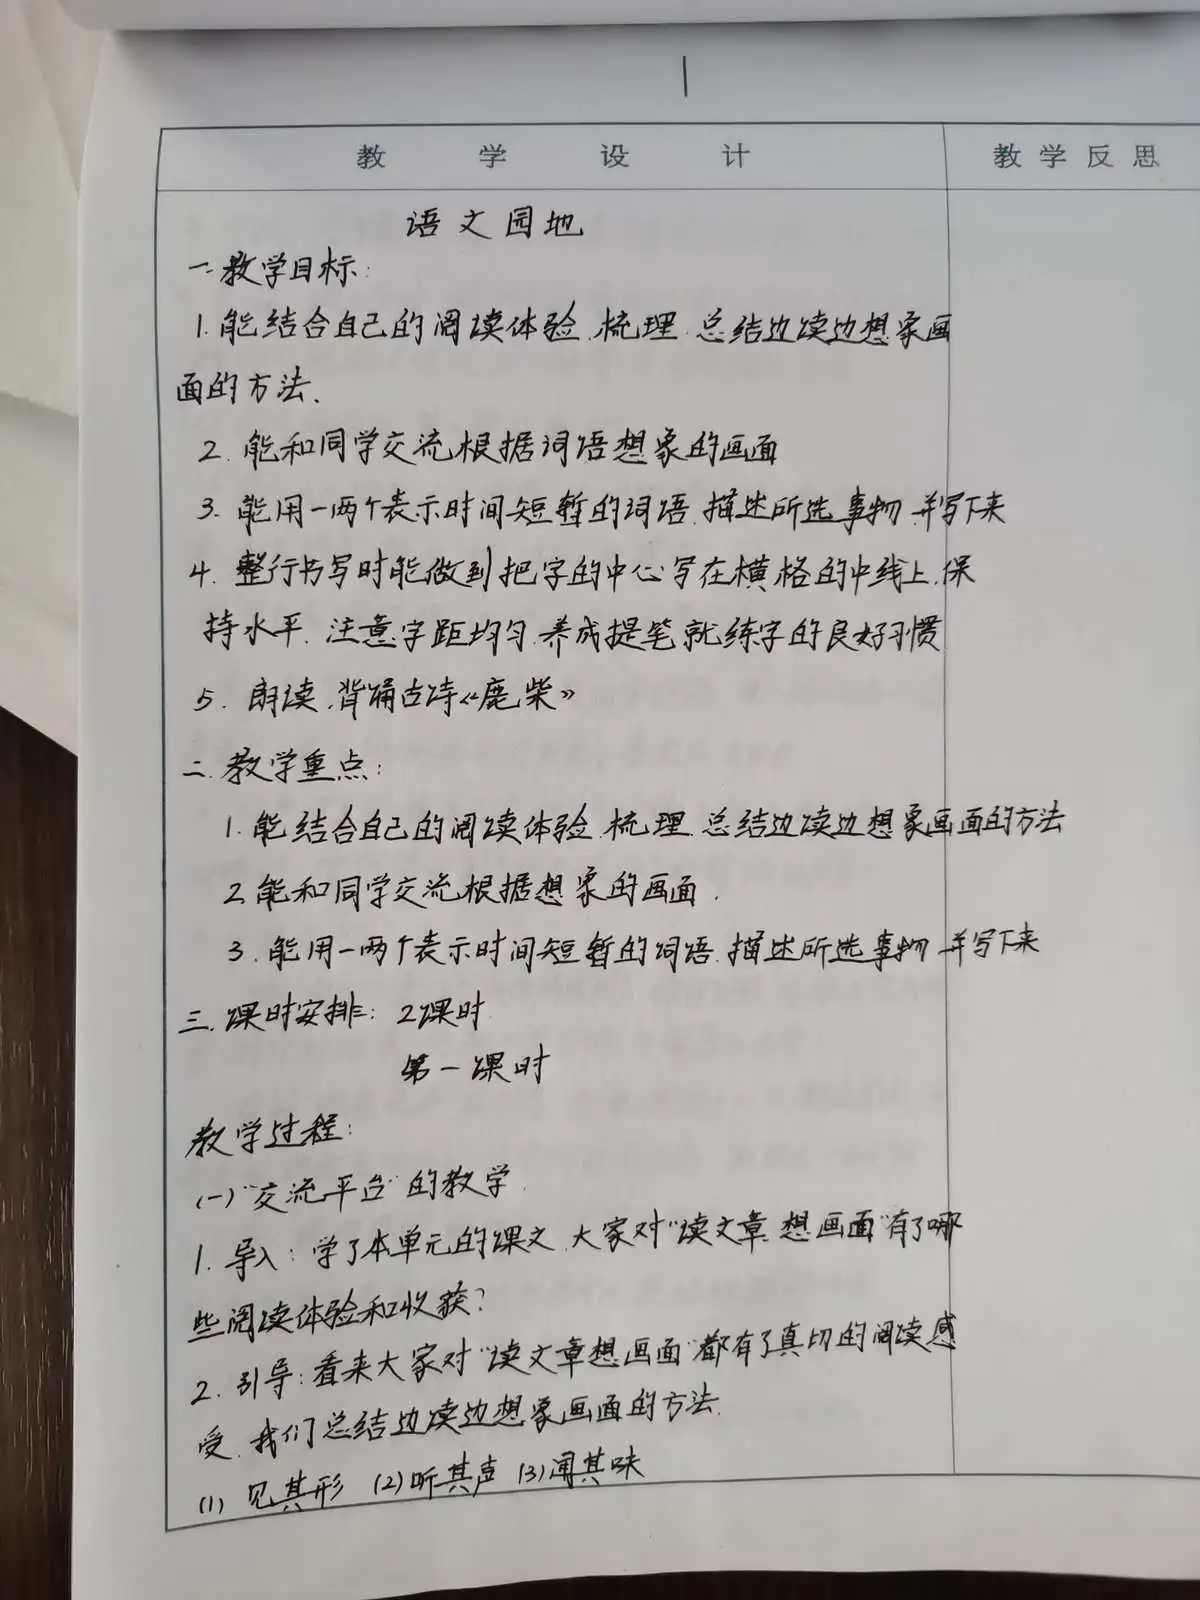 教 学 设 计
教 学 反 思
语文园地
一.教学目标:
1.能结合自己的阅读体验.梳理.总结边读边想象画
面的方法.
2.能和同学交流根据词语想象的画面
3.能用一两个表示时间短暂的词语.描述所选事物.并写下来
4.整行书写时能做到把字的中心写在横格的中线上.保
持水平.注意字距均匀.养成提笔就练字的良好习惯
5.朗读.背诵古诗《鹿柴》
二.教学重点:
1.能结合自己的阅读体验.梳理.总结边读边想象画面的方法
2.能和同学交流根据想象的画面.
3.能用一两个表示时间短暂的词语.描述所选事物.并写下来
三.课时安排: 2课时
第一课时
教学过程:
(一)"交流平台"的教学.
1.导入:学了本单元的课文.大家对"读文章.想画面"有了哪
些阅读体验和收获?
2.引导:看来大家对"读文章想画面"都有了真切的阅读感
受.我们总结边读边想象画面的方法.
(1)见其形 (2)听其声 (3)闻其味